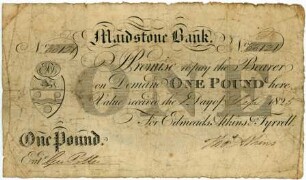 Maidstone Bank.
No No
I Promise to pay the Bearer
on Demand ONE POUND here
Value received the Day of 1825
For Edmeads, Atkins & Tyrrell
One Pound.
Thos. Atkins
Entd.